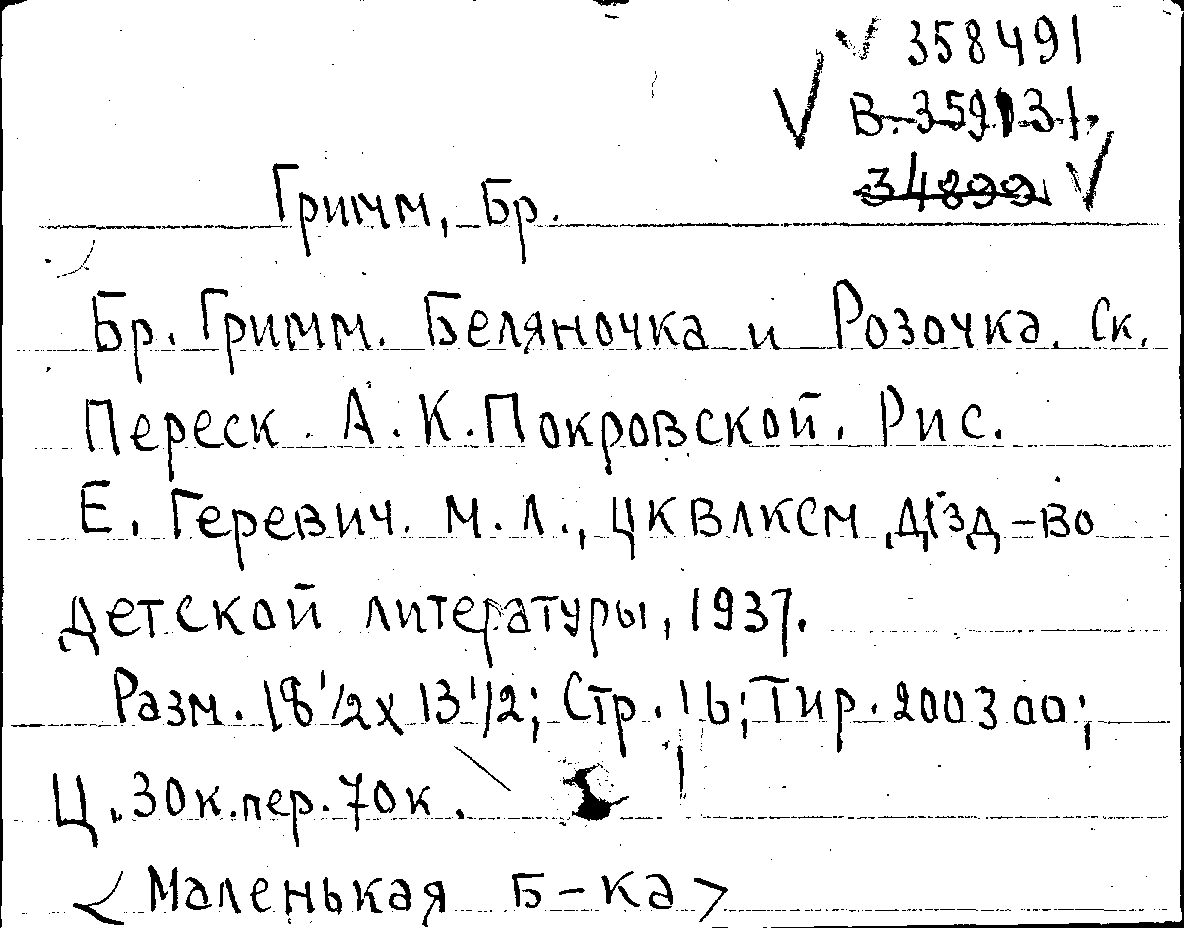 ✓ 358491
✓ В. 359131
34899 ✓
Гримм, Бр.
Бр. Гримм. Беляночка и Розочка. Ск.
Переск. А.К.Покровской. Рис.
Е. Геревич. М.Л., ЦКВЛКСМ, Изд-во
детской литературы, 1937.
Разм. 18 1/2 х 13 1/2; Стр. 16; Тир. 200300;
Ц. 30к.пер.70к.
<Маленькая Б-ка>